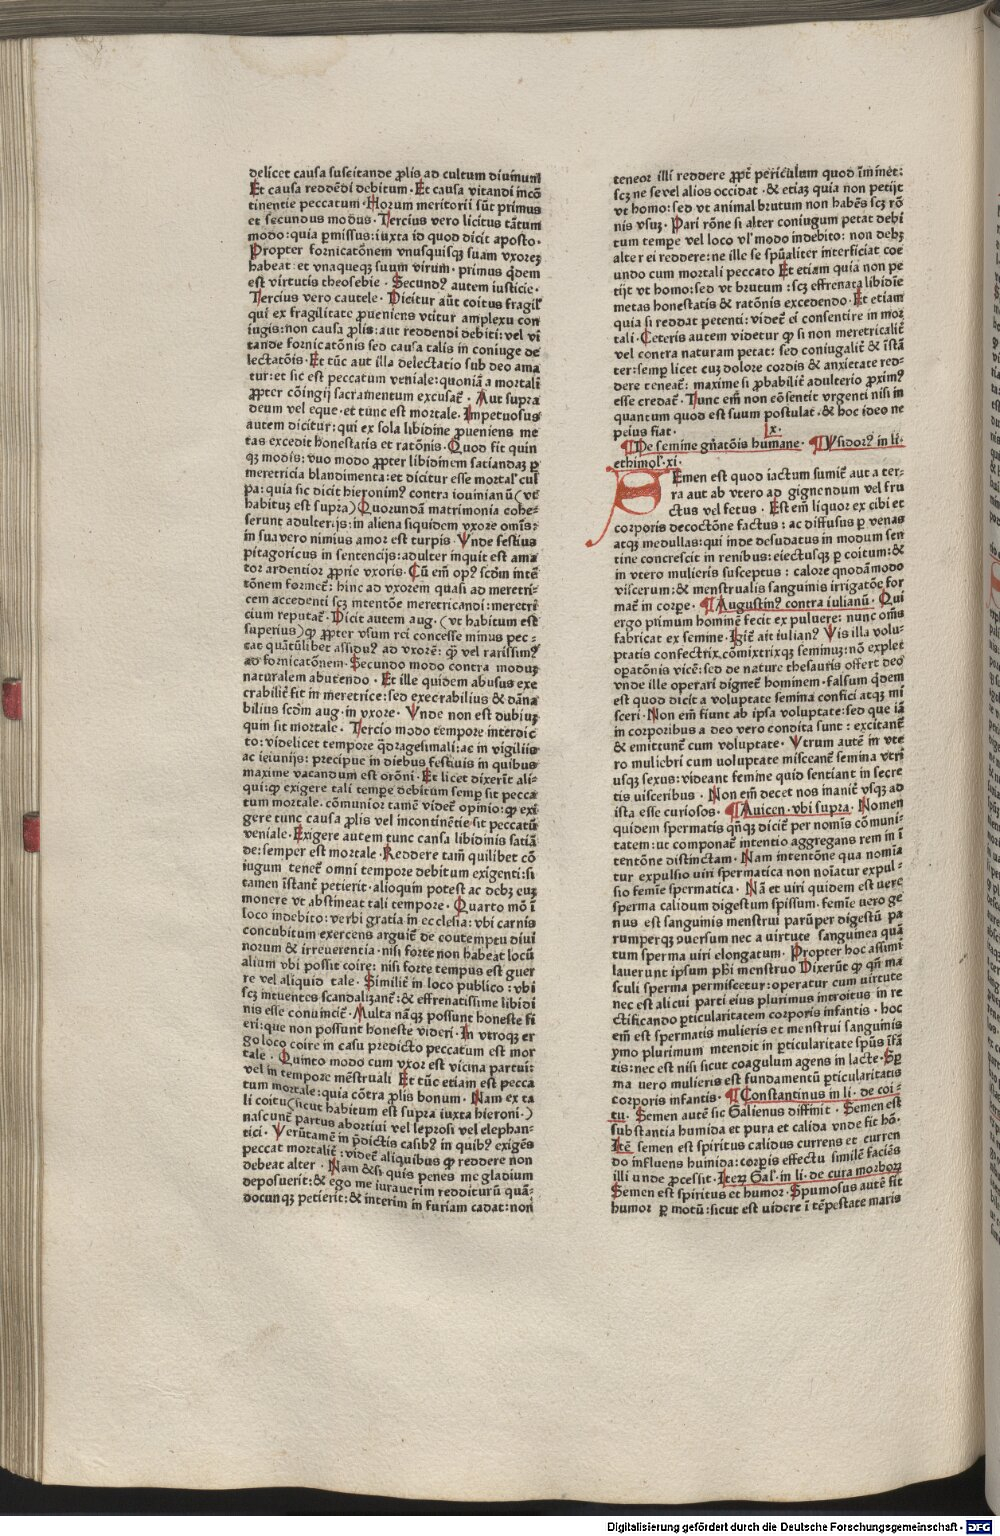 delicet causa suscitande ꝓlis ad cultum diuinum
Et causa reddēdi debitum · Et causa vitandi incō
tinentie peccatum · Horum meritorii sūt primus
et secundus modus · Tercius vero licitus tātum
modo : quia ꝑmissus : iuxta id quod dicit aposto ·
Propter fornicatōnem vnusquisqꝫ suam vxoreꝫ
habeat : et vnaqueqꝫ suum virum · primus q̄dem
est virtutis theosebie · Secundꝰ autem iusticie ·
Tercius vero cautele · Dicitur aūt coitus fragilʼ
qui ex fragilitate ꝓueniens vtitur amplexu con
iugis : non causa ꝓlis : aut reddendi debiti : vel vi
tande fornicatōnis sed causa talis in coniuge de
lectatōis · Et tūc aut illa delectatio sub deo ama
tur : et sic est peccatum veniale : quoniā a mortali
ꝓpter cōingij sacramentum excusat̄ · Aut supra
deum vel eque · et tunc est mortale · Impetuosus
autem dicitur : qui ex sola libidine ꝓueniens me
tas excedit honestatis et ratōnis · Quod fit quin
qꝫ modis : vno modo ꝓpter libidinem satiandaꝫ ꝑ
meretricia blandimenta : et dicitur esse mortalʼ cul
pa : quia sic dicit hieronimꝰ contra iouinianū (vt
habituꝫ est supra) Quorundā matrimonia cohe=
serunt adulterijs : in aliena siquidem vxore om̄is :
in sua vero nimius amor est turpis · Vnde festius
pitagoricus in sentencijs : adulter inquit est ama
tor ardentior ꝓprie vxoris · Cū em̄ opꝰ scdm̄ intē
tōnem formet̄ : hinc ad vxorem quasi ad meretri=
cem accedenti scꝫ intentōe meretricandi : meretri
cium reputat̄ · Dicit autem aug · (vt habitum est
superius) ꝙ ꝓpter vsum rei concesse minus pec=
cat quātūlibet assiduꝰ ad vxorē : ꝙ̄ vel rarissimꝰ
ad fornicatōnem · Secundo modo contra moduꝫ
naturalem abutendo · Et ille quidem abusus exe
crabilit̄ fit in meretrice : sed execrabilius & dāna
bilius scdm̄ aug · in vxore · Vnde non est dubiuꝫ
quin sit mortale · Tercio modo tempore interdic
to : videlicet tempore q̄dragesimali : ac in vigiliis
ac ieiunijs : precipue in diebus festiuis in quibus
maxime vacandum est orōni · Et licet dixerīt ali=
qui : ꝙ exigere tali tempe debitum semp sit pecca
tum mortale · cōmunior tamē videt̄ opinio : ꝙ exi
gere tunc causa ꝓlis vel incontinētie sit peccatū
veniale · Exigere autem tunc causa libidinis satiā
de : semper est mortale · Reddere tam̄ quilibet cō
iugum tenet̄ omni tempore debitum exigenti : si
tamen īstant̄ petierit · alioquin potest ac debꝫ euꝫ
monere vt abstineat tali tempore · Quarto mō ī
loco indebito : verbi gratia in ecclesia : vbi carnis
concubitum exercens arguit̄ de contemptu diui
norum & irreuerentia · nisi forte non habeat locū
alium vbi possit coire : nisi forte tempus est guer
re vel aliquid tale · Similit̄ in loco publico : vbi
scꝫ intuentes scandalizant̄ : & effrenatissime libidi
nis esse conuincit̄ · Multa nāqꝫ possunt honeste fi
eri : que non possunt honeste videri · In vtroqꝫ er
go loco coire in casu predicto peccatum est mor
tale · Quinto modo cum vxor est vicina partui :
vel in tempore mēstruali Et tūc etiam est pecca
tum mortale : quia cōtra ꝓlis bonum · Nam ex ta
li coitu (sicut habitum est supra iuxta hieroni ·)
nascunt̄ partus abortiui vel leprosi vel elephan=
tici · Verūtamē in p̄dictis casibꝰ in quibꝰ exigēs
peccat mortalit̄ : videt̄ aliquibus ꝙ reddere non
debeat alter · Nam & si quis penes me gladium
deposuerit : & ego me iurauerim redditurū quā=
docunqꝫ petierit : & interim in furiam cadat : non
teneor illi reddere ꝓpt̄ periculum quod īminet :
scꝫ ne se vel alios occidat · & etiaꝫ quia non petijt
vt homo : sed vt animal brutum non habēs scꝫ rō
nis vsuꝫ · Pari rōne si alter coniugum petat debi
tum tempe vel loco vlʼ modo indebito : non debꝫ
alter ei reddere : ne ille se spūaliter interficiat coe
undo cum mortali peccato Et etiam quia non pe
tijt vt homo : sed vt brutum : scꝫ effrenata libidīe
metas honestatis & ratōnis excedendo · Et etiam
quia si reddat petenti : videt̄ ei consentire in mor
tali · Ceteris autem videtur ꝙ si non meretricalit̄
vel contra naturam petat : sed coniugalit̄ & īstā
ter : semꝑ licet cuꝫ dolore cordis & anxietate red=
dere teneat̄ : maxime si ꝓbabilit̄ adulterio ꝓximꝰ
esse credat̄ · Tunc em̄ non cōsentit vrgenti nisi in
quantum quod est suum postulat · & hoc ideo ne
peius fiat · lx ·
¶ De semine gn̄atōis humane · ¶ Ysidorꝰ in li ·
ethimolʼ · xi ·
SEmen est quod iactum sumit̄ aut a ter=
ra aut ab vtero ad gignendum vel fru
ctus vel fetus · Est em̄ liquor ex cibi et
corporis decoctōne factus : ac diffusus ꝑ venas
atqꝫ medullas : qui inde desudatus in modum sen
tine concrescit in renibus : eiectusqꝫ ꝑ coitum : &
in vtero mulieris susceptus : calore quodāmodo
viscerum : & menstrualis sanguinis irrigatōe for
mat̄ in corpe · ¶ Augustinꝰ contra iulianū · Qui
ergo primum hominē fecit ex puluere : nunc om̄s
fabricat ex semine · Igit̄ ait iulianꝰ Vis illa volu=
ptatis confectrix cōmixtrixqꝫ seminuꝫ : nō explet
opatōnis vicē : sed de nature thesauris offert deo
vnde ille operari dignet̄ hominem · falsum q̄dem
est quod dicit a voluptate semina confici atqꝫ mi
sceri · Non em̄ fiunt ab ipsa voluptate : sed que iā
in corporibus a deo vero condita sunt : excitant̄
& emittunt̄ cum voluptate · Vtrum autē in vte
ro muliebri cum uoluptate misceant̄ semina vtri
usqꝫ sexus : videant femine quid sentiant in secre
tis uisceribus · Non em̄ decet nos inanit̄ vsqꝫ ad
ista esse curiosos · ¶ Auicen · vbi supra · Nomen
quidem spermatis qn̄qꝫ dicit̄ per nomīs cōmuni=
tatem : ut componat̄ intentio aggregans rem in ī
tentōne distinctam · Nam intentōne qua nomīa
tur expulsio uiri spermatica non noīatur expul=
sio femīe spermatica · Nā et uiri quidem est uere
sperma calidum digestum spissum · femīe uero ge
nus est sanguinis menstrui parūper digestū pa
rumperqꝫ ꝯuersum nec a uirtute sanguinea quā
tum sperma uiri elongatum · Propter hoc assimi
lauerunt ipsum pħi menstruo Dixerūt ꝙ qn̄ ma
sculi sperma permiscetur : operatur cum uirtute
nec est alicui parti eius plurimus introitus in re
ctificando ꝑticularitatem corporis infantis · hoc
em̄ est spermatis mulieris et menstrui sanguinis
ymo plurimum intendit in ꝑticularitate spūs īfā
tis : nec est nisi sicut coagulum agens in lacte · Sꝑ
ma uero mulieris est fundamentū ꝑticularitatis
corporis infantis · ¶ Constantinus in li · de coi=
tu · Semen autē sic Galienus diffinit · Semen est
substantia humida et pura et calida vnde fit hō ·
Itē semen est spiritus calidus currens et curren
do influens humida : corpis effectu similē faciēs
illi unde ꝓcessit · Iteꝝ Galʼ · in li · de cura morboꝝ
Semen est spiritus et humor · Spumosus autē fit
humor ꝑ motū : sicut est uidere ī tēpestate maris
Digitalisierung gefördert durch die Deutsche Forschungsgemeinschaft - DFG